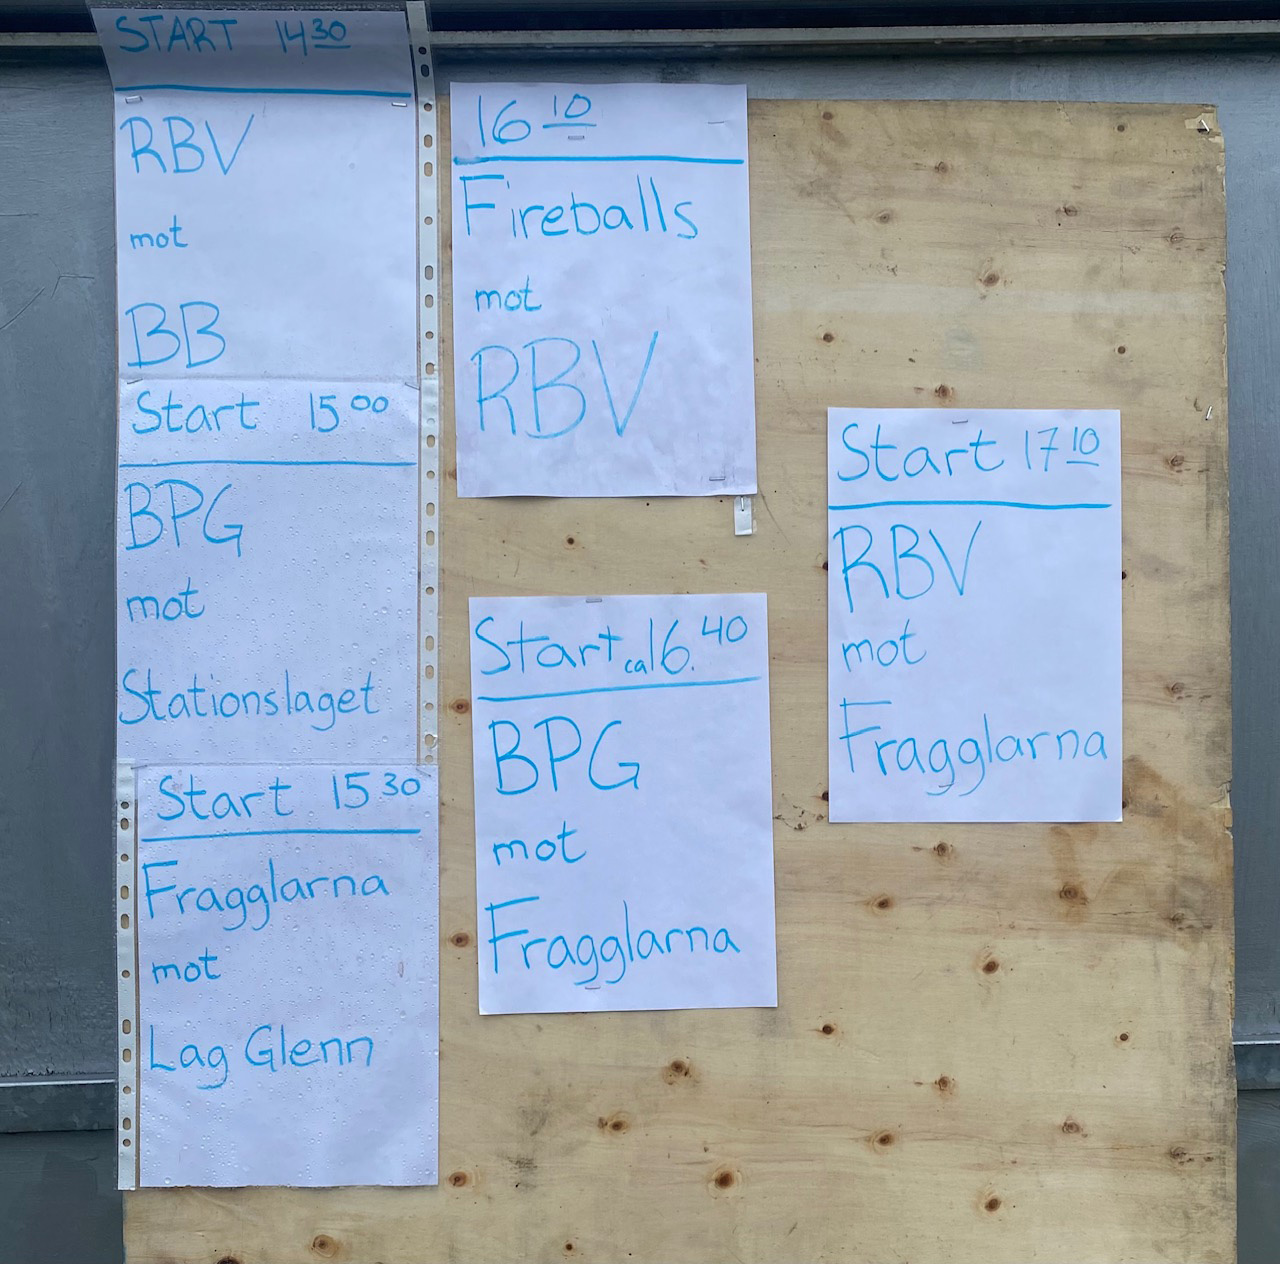 START 14 30
RBV
mot
BB
Start 15 00
BPG
mot
Stationslaget
Start 15 30
Fragglarna
mot
Lag Glenn
16 10
Fireballs
mot
RBV
Start ca 16. 40
BPG
mot
Fragglarna
Start 17 10
RBV
mot
Fragglarna